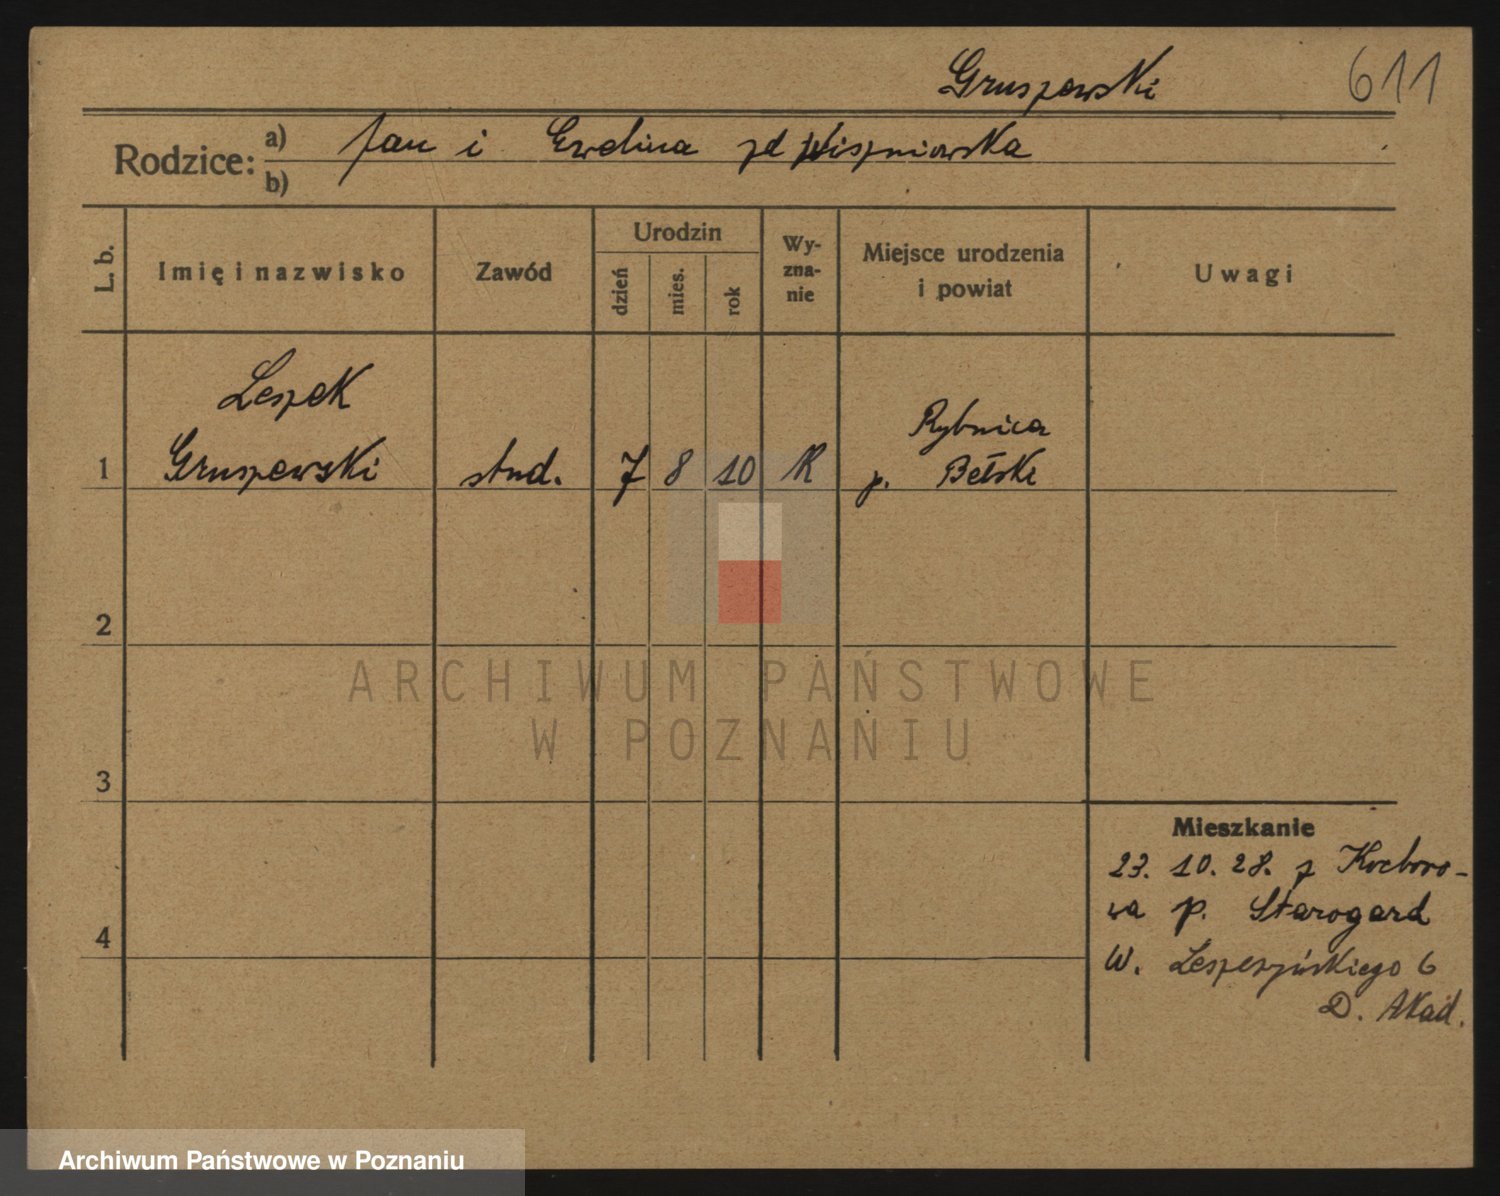 Gruszewski 611
Rodzice: a) Jan i Ewelina zd Wiszniowska
b)
L. b. Imię i nazwisko Zawód Urodzin dzień mies. rok Wy-zna-nie Miejsce urodzenia i powiat Uwagi
Leszek
Rybnica
1 Gruszewski stud. 7 8 10 R p. Bełskie
2
ARCHIWUM PAŃSTWOWE
W POZNANIU
3
Mieszkanie
23. 10. 28. z Kocboro-
wa p. Starogard
4
W. Leszczyńskiego 6
D. Akad.
Archiwum Państwowe w Poznaniu